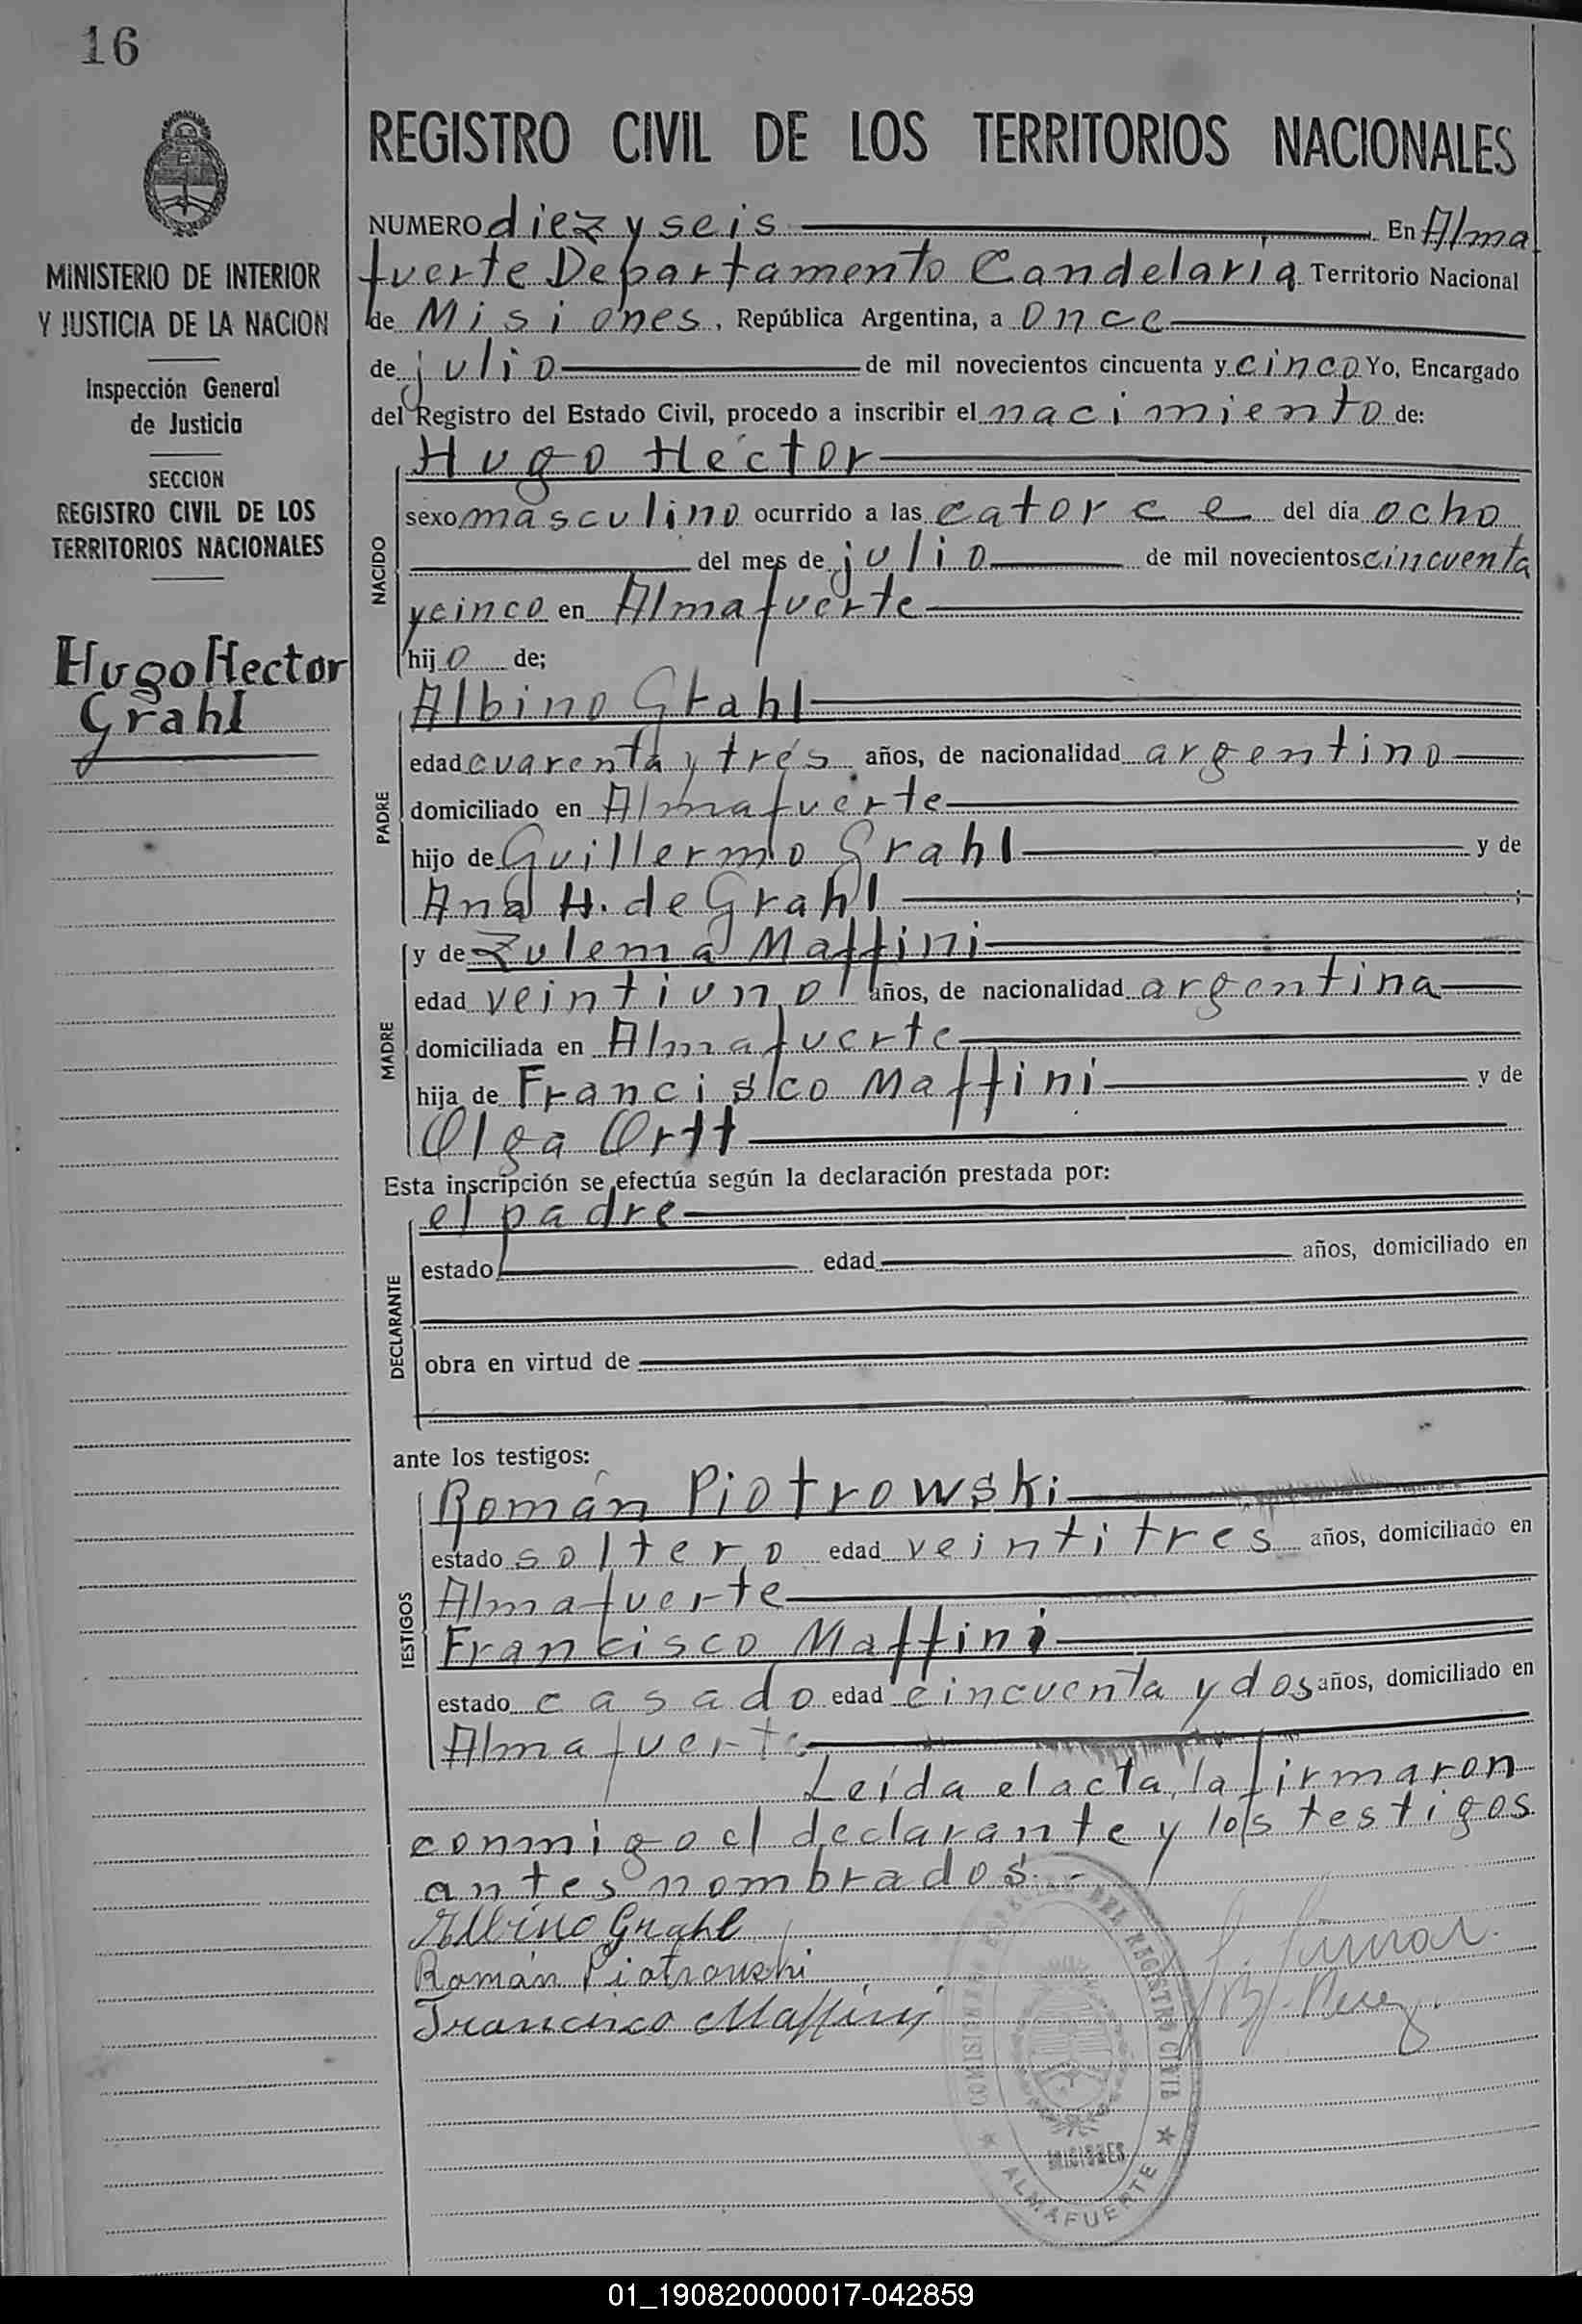 16
MINISTERIO DE INTERIOR
Y JUSTICIA DE LA NACION
Inspección General
de Justicia
SECCION
REGISTRO CIVIL DE LOS
TERRITORIOS NACIONALES
Hugo Hector
Grahl
REGISTRO CIVIL DE LOS TERRITORIOS NACIONALES
NUMERO diez y seis En Alma
fuerte Departamento Candelaria Territorio Nacional
de Misiones, República Argentina, a once
de julio de mil novecientos cincuenta y cinco Yo, Encargado
del Registro del Estado Civil, procedo a inscribir el nacimiento de:
NACIDO
Hugo Héctor
sexo masculino ocurrido a las catorce del día ocho
del mes de julio de mil novecientos cincuenta
y cinco en Almafuerte
hijo de;
PADRE
Albino Grahl
edad cuarenta y trés años, de nacionalidad argentino
domiciliado en Almafuerte
hijo de Guillermo Grahl y de
Ana H. de Grahl ;
MADRE
y de Zulema Maffini
edad veintiuno años, de nacionalidad argentina
domiciliada en Almafuerte
hija de Francisco Maffini y de
Olga Ortt
Esta inscripción se efectúa según la declaración prestada por:
DECLARANTE
el padre
estado edad años, domiciliado en
obra en virtud de
ante los testigos:
TESTIGOS
Román Piotrowski
estado soltero edad veintitres años, domiciliado en
Almafuerte
Francisco Maffini
estado casado edad cincuenta y dos años, domiciliado en
Almafuerte
Leída el acta, la firmaron
conmigo el declarante y los testigos
antes nombrados.-
Albino Grahl
Román Piotrowski
Francisco Maffini
DEL REGISTRO CIVIL
MISIONES
★ ALMAFUERTE ★
01_190820000017-042859